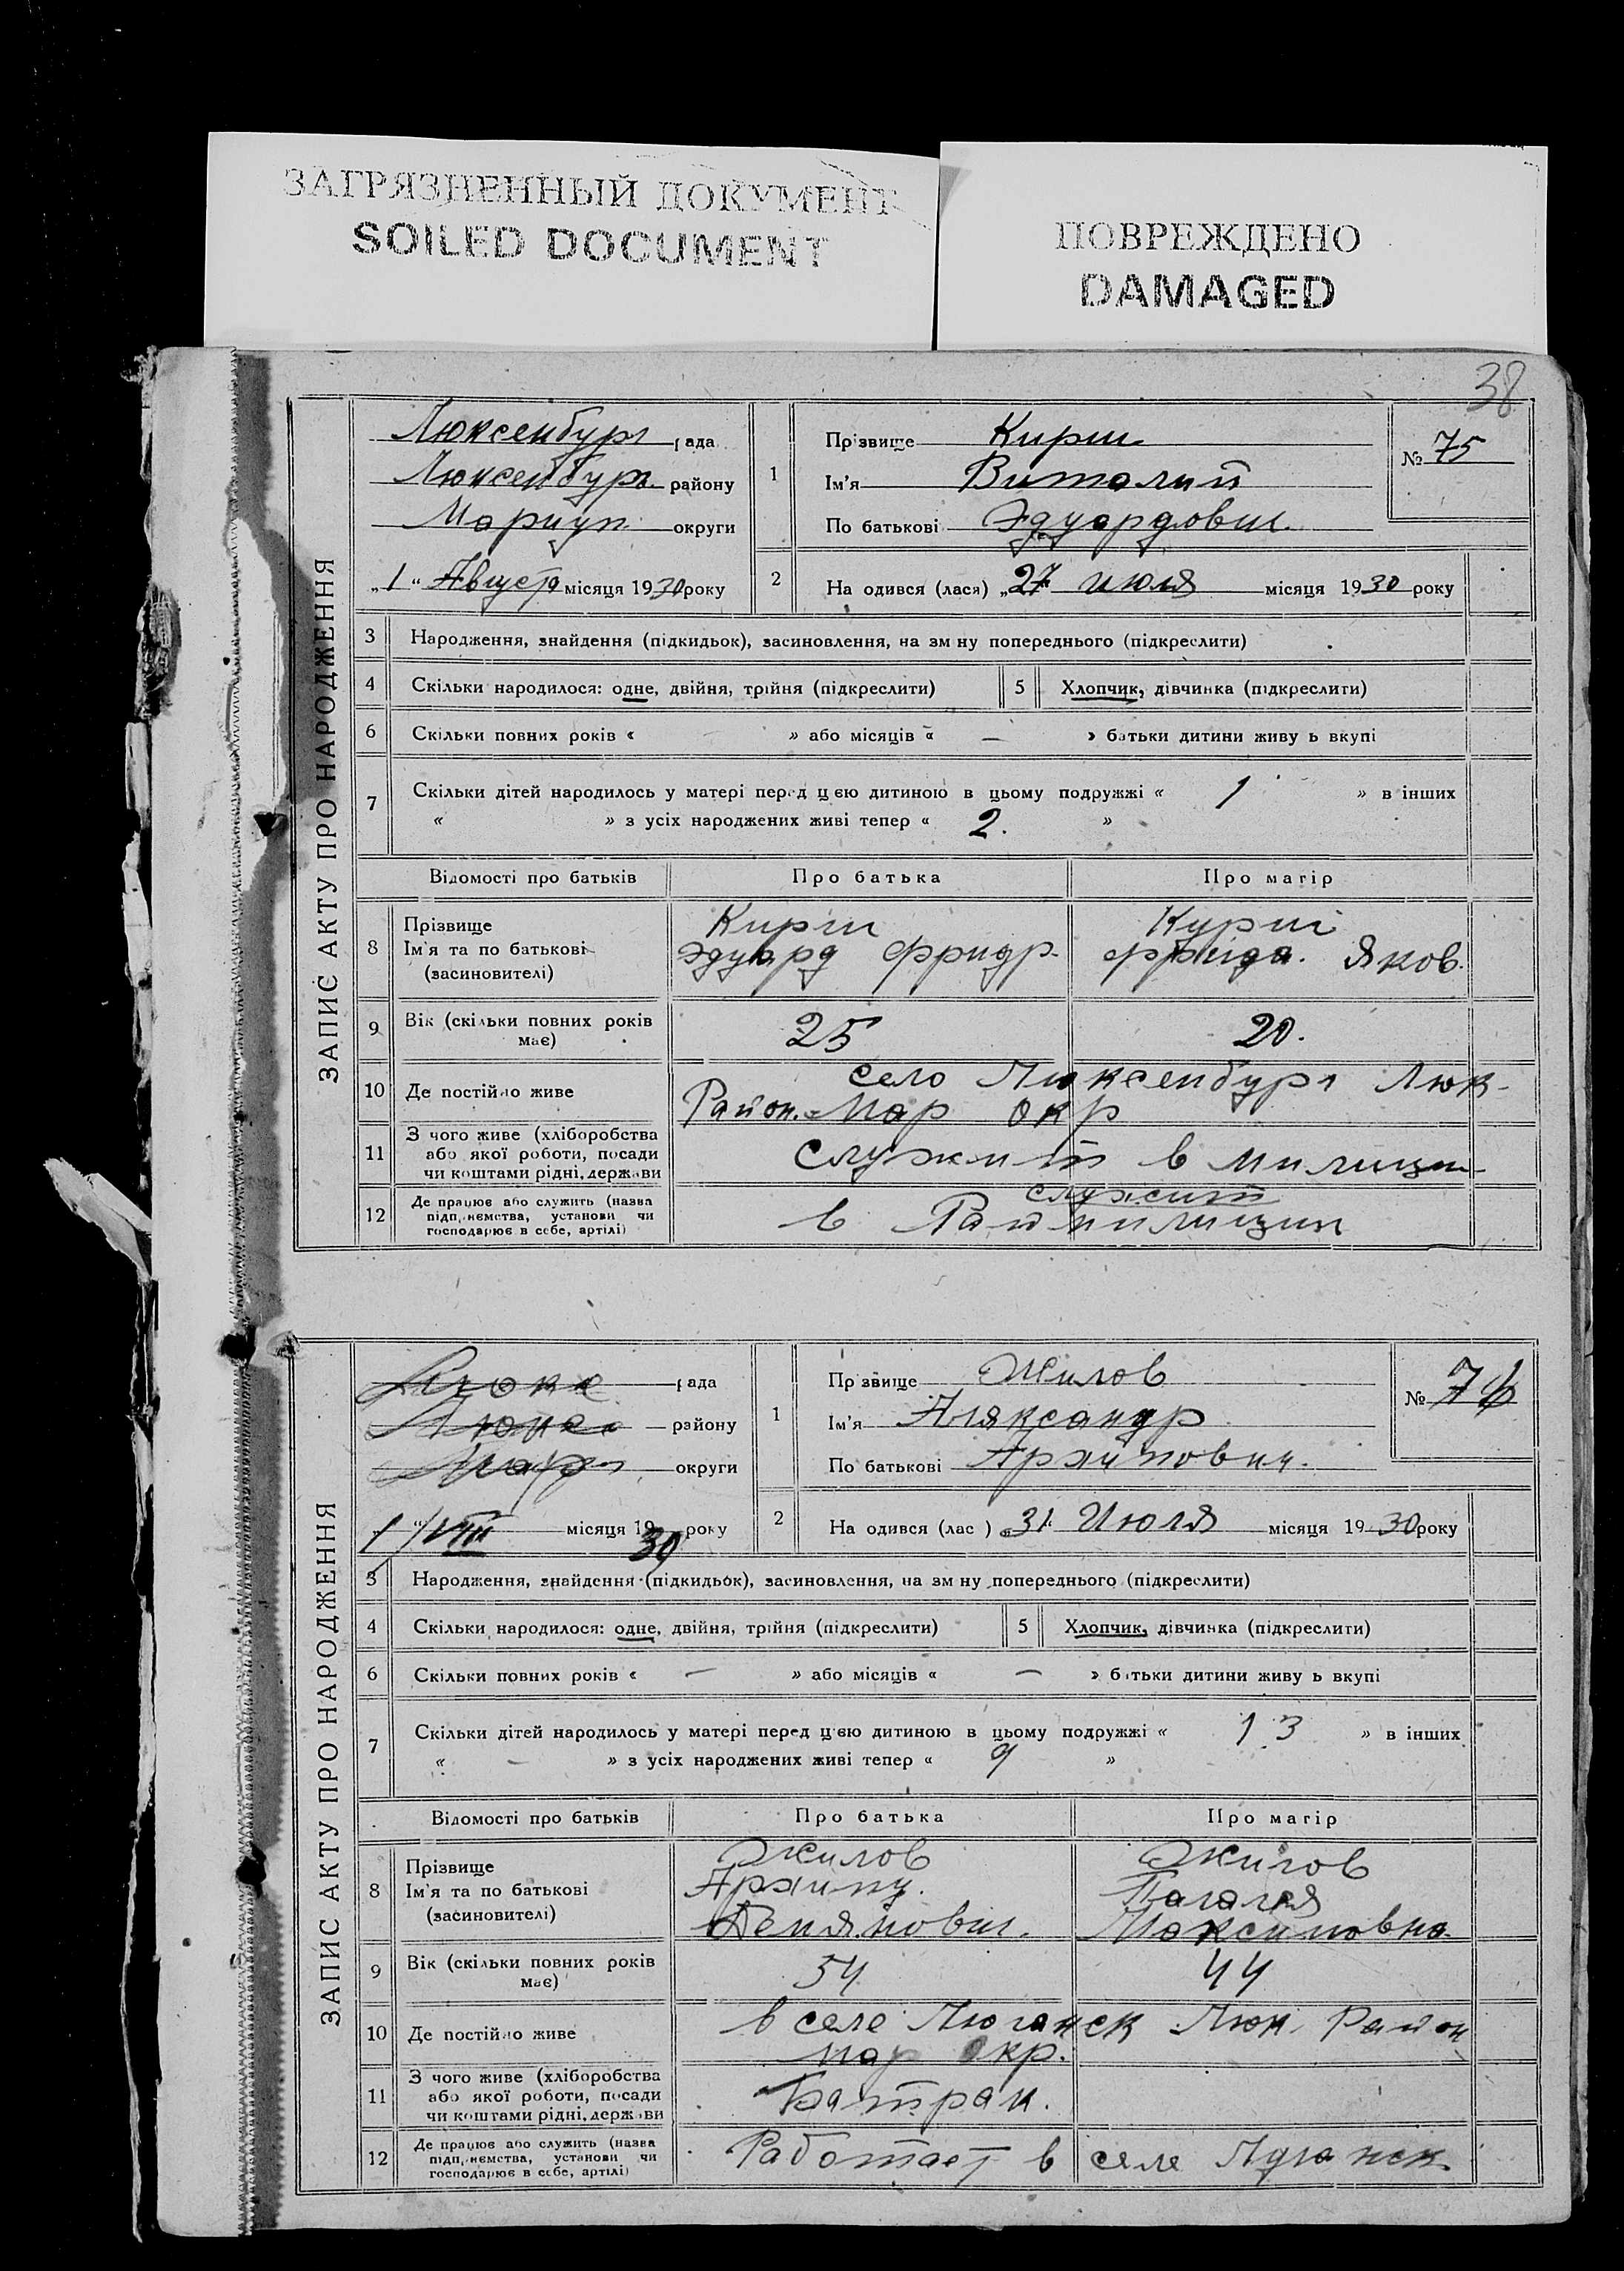 ЗАГРЯЗНЕННЫЙ ДОКУМЕНТ
SOILED DOCUMENT
ПОВРЕЖДЕНО
DAMAGED
38
ЗАПИС АКТУ ПРО НАРОДЖЕННЯ
Люксенбург рада
Люксенбург. району
Мариуп округи
„1“ Августа місяця 1930 року
1
Прізвище Кирш
Ім'я Виталий
По батькові Эдуардович.
№ 75
2 На одився (лася) „27 июля місяця 1930 року
3 Народження, знайдення (підкидьок), засиновлення, на зм ну попереднього (підкреслити)
4 Скільки народилося: одне, двійня, трійня (підкреслити) 5 Хлопчик, дівчинка (підкреслити)
6 Скільки повних років « — » або місяців « — » батьки дитини живу ь вкупі
7 Скільки дітей народилось у матері перед цєю дитиною в цьому подружжі « 1 » в інших
« » з усіх народжених живі тепер « 2. »
Відомості про батьків Про батька Про матір
8 Прізвище Ім'я та по батькові (засиновителі)
Кирш
Эдуард Фридр.
Кирш
Фрида. Яков.
9 Вік (скільки повних років має) 25 20.
10 Де постійно живе село Люксенбург Люк-
Район. Мар окр
11 З чого живе (хліборобства або якої роботи, посади чи коштами рідні, держави
служит в милиции
12 Де працює або служить (назва підприємства, установи чи господарює в себе, артілі)
служит
в Раймилиции
ЗАПИС АКТУ ПРО НАРОДЖЕННЯ
Люкс рада
Люкс району
Мар округи
1 “/VIII місяця 1930 року
1
Пр звище Жилов
Ім'я Аляксандр
По батькові Архипович.
№ 76
2 На одився (лас ) „31“ Июля місяця 1930 року
3 Народження, знайдення (підкидьок), засиновлення, на зм ну попереднього (підкреслити)
4 Скільки народилося: одне, двійня, трійня (підкреслити) 5 Хлопчик, дівчинка (підкреслити)
6 Скільки повних років « — » або місяців « — » батьки дитини живу ь вкупі
7 Скільки дітей народилось у матері перед цєю дитиною в цьому подружжі « 13 » в інших
« — » з усіх народжених живі тепер « 9 »
Відомості про батьків Про батька Про матір
8 Прізвище Ім'я та по батькові (засиновителі)
Жилов
Архипу.
Демянович.
Жилов
Максимовна.
9 Вік (скільки повних років має) 54 44
10 Де постійно живе в селе Люганск Люк. Район
Мар Окр.
11 З чого живе (хліборобства або якої роботи, посади чи коштами рідні, держави
Батрак.
12 Де працює або служить (назва підприємства, установи чи господарює в себе, артілі)
Работает в селе Луганск